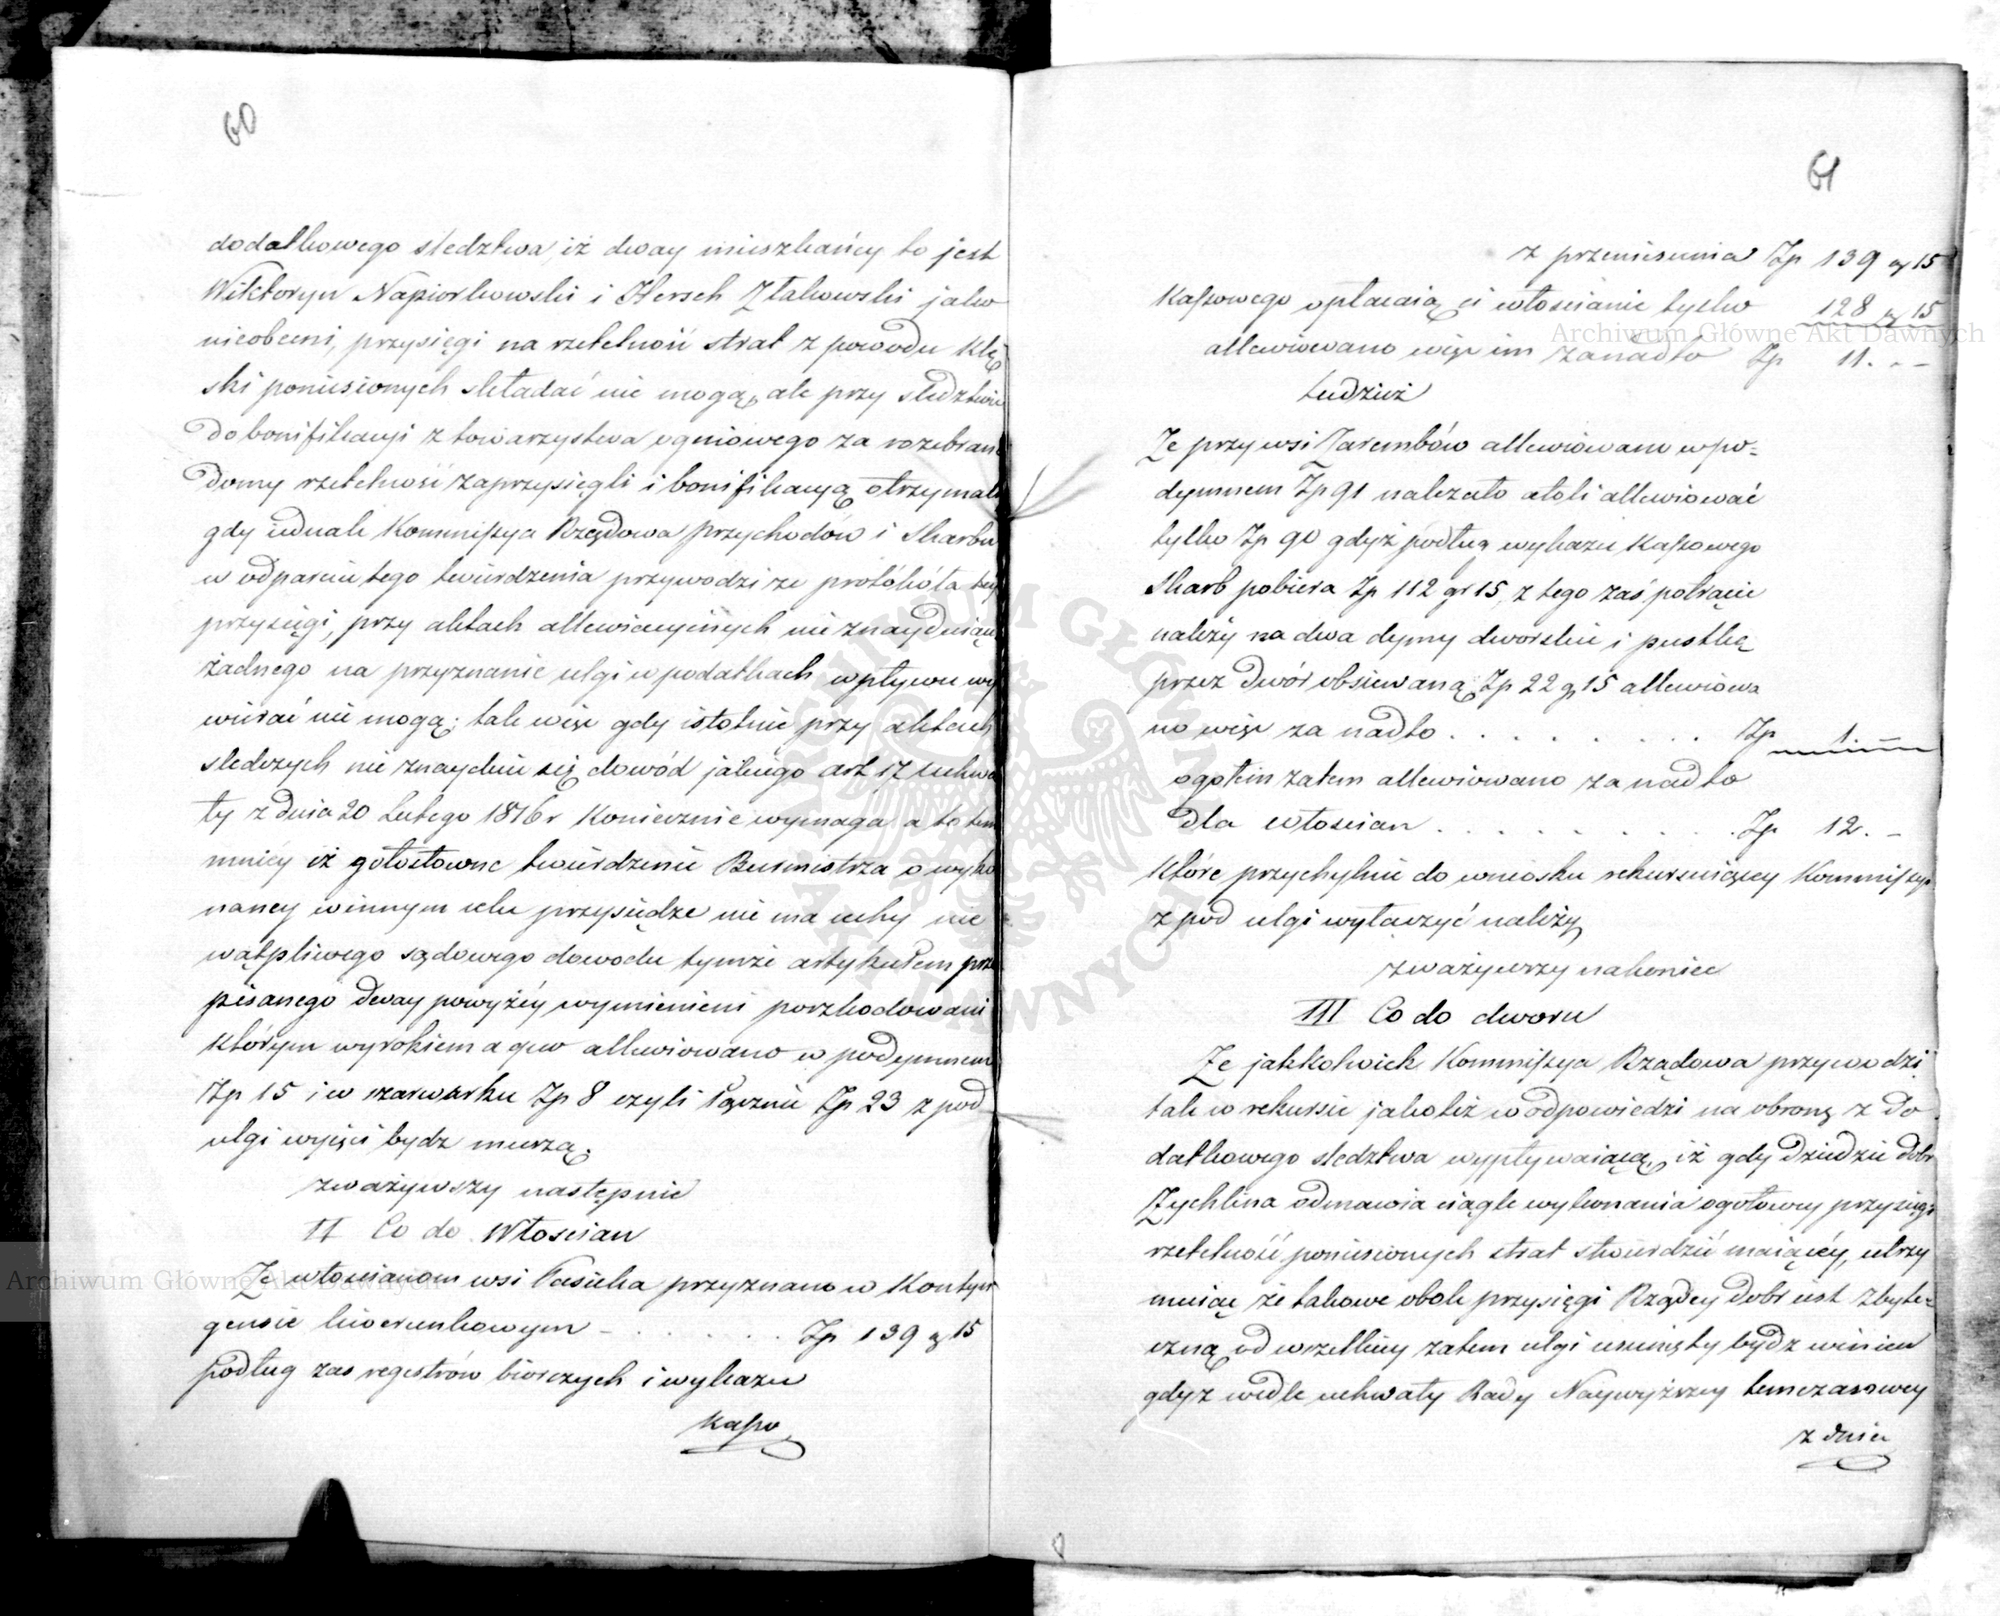 60
dodatkowego sledztwa, iż dway mieszkańcy to jest
Wiktoryn Napiorkowski i Hersch Złakowski jako
nieobecni, przysięgi na rzetelność strat z powodu klę
ski poniesionych składać nie mogą, ale przy sledztwie
do bonifikacyi z towarzystwa ogniowego za rozebrane
domy rzetelność zaprzysięgli i bonifikacyą otrzymali
gdy iednak Kommissya Rządowa Przychodów i Skarbu
w odparciu tego twierdzenia przywodzi ze protókóła tey
przysięgi, przy aktach allewiacyinych nie znayduiące
żadnego na przyznanie ulgi w podatkach wpływu wy
wierać nie mogą; tak więc gdy istotnie przy aktach
sledczych nie znayduie się dowód jakiego art 17 uchwa
ły z dnia 20 Lutego 1816 r koniecznie wymaga a to tem
mniéy iż gołosłowne twierdzenie Burmistrza o wyko
naney w innym celu przysiędze nie ma cechy nie
wątpliwego sądowego dowodu tymże artykułem prze
pisanego dway powyżéy wymienieni poszkodowani
którym wyrokiem a quo allewiowano w podymnem
Zp 15 i w szarwarku Zp 8 czyli łącznie Zp 23 z pod
ulgi wyięci bydz muszą.
zważywszy następnie
II Co do Włoscian
Ze włoscianom wsi Pasieka przyznano w Kontyn
gensie liwerunkowym - . . . . . . Zp 139 g 15
podług zas regestrów biorczych i wykazu
Kasso
61
z przeniesienia Zp 139 g 15
Kassowego opłacaią ci włoscianie tylko 128 g 15
allewiowano więc im zanadto Zp 11. - -
tudzież
Ze przy wsi Zarembów allewiowano w po=
dymnem Zp 91 należało atoli allewiować
tylko Zp 90 gdyż podług wykazu Kassowego
Skarb pobiera Zp 112 gr 15, z tego zaś potrącić
należy na dwa dymy dworskie i pustkę
przez dwór obsiewaną Zp 22 g 15 allewiowa
no więc za nadto . . . . . . . . . Zp 1. —
ogołem zatem allewiowano za nadto
dla włoscian . . . . . . . . . Zp 12. -
które przychylnie do wniosku rekursuiącey Kommissyi
z pod ulgi wyłaczyć należy
zważywszy nakoniec
III Co do dworu
Ze jakkolwiek Kommissya Rządowa przywodzi
tak w rekursie jako też w odpowiedzi na obronę z do
datkowego sledztwa wypływaiącą, iż gdy Dziedzic dobr
Zychlina odmawia ciągle wykonania ogołowey przysięgi
rzetelność poniesionych strat stwierdzić maiącéy, utrzy
muiąc że takowe obok przysięgi Rządcy dobr iest zbyte=
czną, od wszelkiey zatem ulgi usunięty bydz winien
gdyz wedle uchwały Rady Naywyższey temczasowey
z dnia
Archiwum Główne Akt Dawnych
Archiwum Główne Akt Dawnych
ARCHIWUM GŁÓWNE AKT DAWNYCH